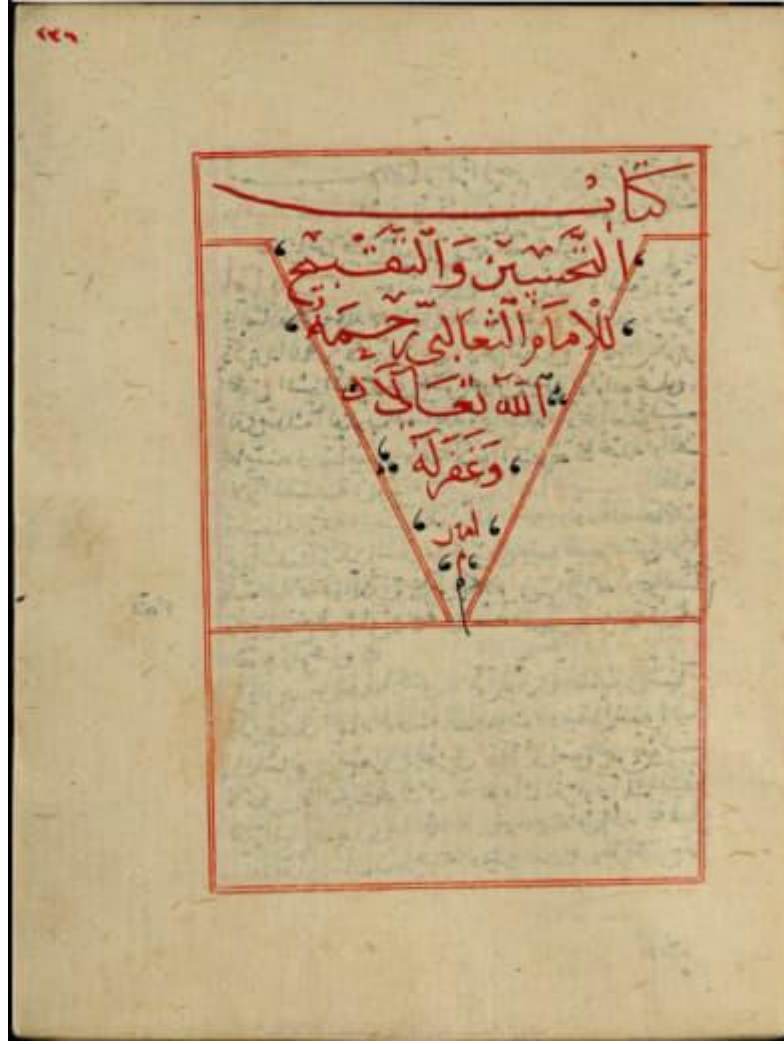 كتاب
التَّحْسِيْن وَالْتَقْبِيْح
لْلامَامِ الْثعَالبي رَحِمَهُ
اللّه تعَالَى
وَغَفَرَلَهُ
امين
م